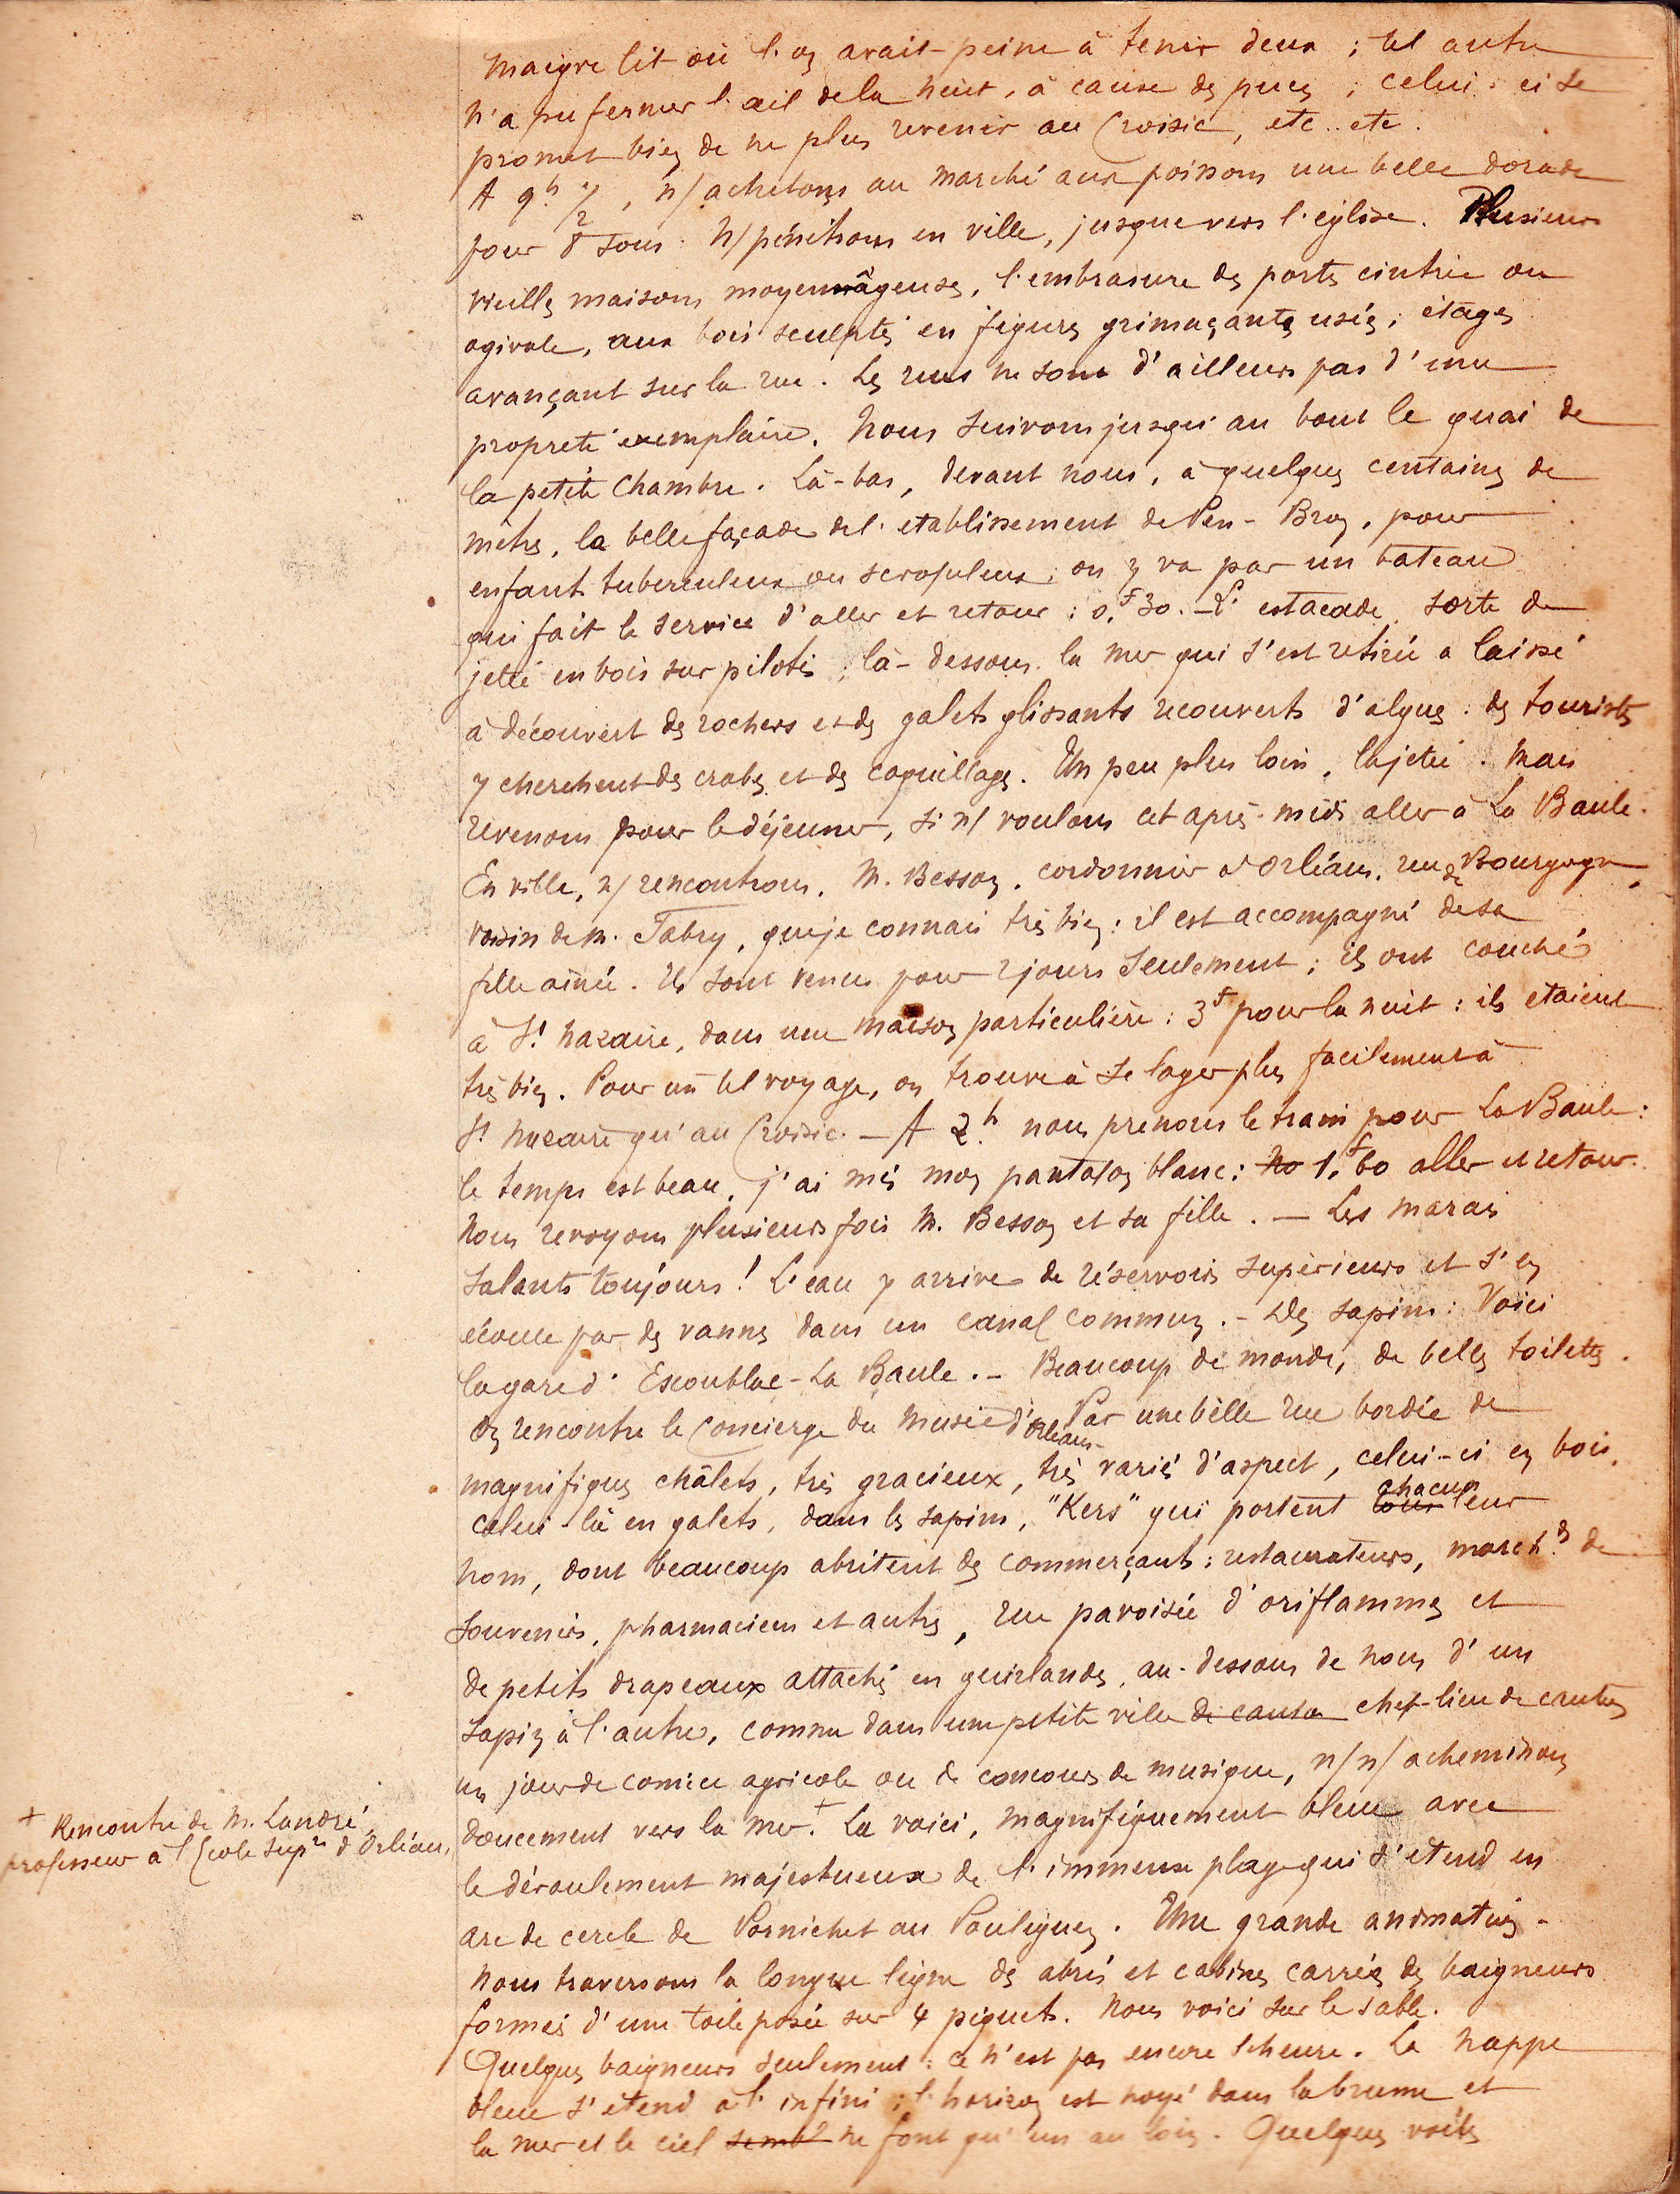 maigre lit où l'on avait peine à tenir deux ; tel autre
n'a pu fermer l'œil de la nuit, à cause des puces ; celui-ci se
promet bien de ne plus revenir au Croisic, etc.. etc.
A 9h 1/2, n/ achetons au marché aux poissons une belle dorade
pour 8 sous. N/ pénétrons en ville, jusque vers l'église. Plusieurs
vieilles maisons moyennâgeuses, l'embrasure des portes cintrée ou
ogivale, aux bois sculptés en figures grimaçantes usées ; étages
avançant sur la rue. Les rues ne sont d'ailleurs pas d'une
propreté exemplaire. Nous suivons jusqu'au bout le quai de
la petite Chambre. Là-bas, devant nous, à quelques centaines de
mètres, la belle façade de l'établissement de Pen-Bron, pour
enfants tuberculeux ou scrofuleux ; on y va par un bateau
qui fait le service d'aller et retour : 0,f30. - L'estacade, sorte de
jetée en bois sur pilotis ; là-dessous la mer qui s'est retirée a laissé
à découvert des rochers et des galets glissants recouverts d'algues : des touristes
y cherchent des crabes et des coquillages. Un peu plus loin, la jetée. Mais
revenons pour le déjeuner, si n/ voulons cet après-midi aller à La Baule.
En ville, n/ rencontrons M. Besson, cordonnier à Orléans, rue de Bourgogne,
voisin de M. Fabry, que je connais très bien : il est accompagné de sa
fille aînée. Ils sont venus pour 2 jours seulement ; ils ont couché
à St Nazaire, dans une maison particulière : 3f pour la nuit : ils étaient
très bien. Pour un tel voyage, on trouve à se loger plus facilement à
St Nazaire qu'au Croisic. - A 2h. nous prenons le train pour La Baule :
le temps est beau, j'ai mis mon pantalon blanc : no 1,f60 aller et retour.
Nous revoyons plusieurs fois M. Besson et sa fille. - Les marais
salants toujours ! L'eau y arrive de réservoirs supérieurs et s'en
écoule par des vannes dans un canal commun. - Des sapins : Voici
la gare d'Escoublac-La Baule. - Beaucoup de monde, de belles toilettes.
On rencontre le concierge du musée d'Orléans- Par une belle rue bordée de
magnifiques châlets, très gracieux, très variés d'aspect, celui-ci en bois,
celui-là en galets, dans les sapins, "Kers" qui portent tous chacun leur
nom, dont beaucoup abritent des commerçants : restaurateurs, march.ds de
souvenirs, pharmaciens et autres, rue pavoisée d'oriflammes et
de petits drapeaux attachés en guirlandes, au-dessous de nous d'un
sapin à l'autre, comme dans une petite ville de canton chef-lieu de canton
un jour de comice agricole ou de concours de musique, n/ n/ acheminons
doucement vers la mer.+ La voici, magnifiquement bleue avec
+ Rencontre de M. Landré,
professeur à l'Ecole Supre d'Orléans,
le déroulement majestueux de l'immense plage qui s'étend en
arc de cercle de Pornichet au Pouliguen. Une grande animation -
Nous traversons la longue ligne des abris et cabines carrées des baigneurs
formés d'une toile posée sur 4 piquets. Nous voici sur le sable.
Quelques baigneurs seulement : ce n'est pas encore l'heure. La nappe
bleue s'étend à l'infini ; l'horizon est noyé dans la brume et
la mer et le ciel sembl ne font qu'un au loin. Quelques voiles